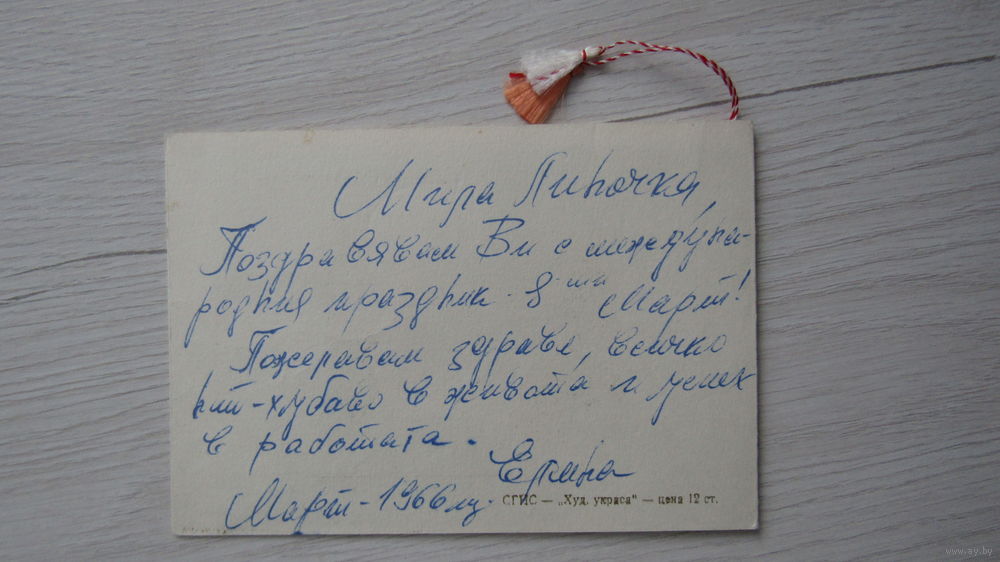 Мила Линочка,
Поздравявам Ви с междуна-
родния празник 8-ми Март!
Пожелавам здраве, всичко
най-хубаво в живота и успех
в работата.
Март - 1966 г.
СГИС — „Худ. украса“ — цена 12 ст.
www.ay.by